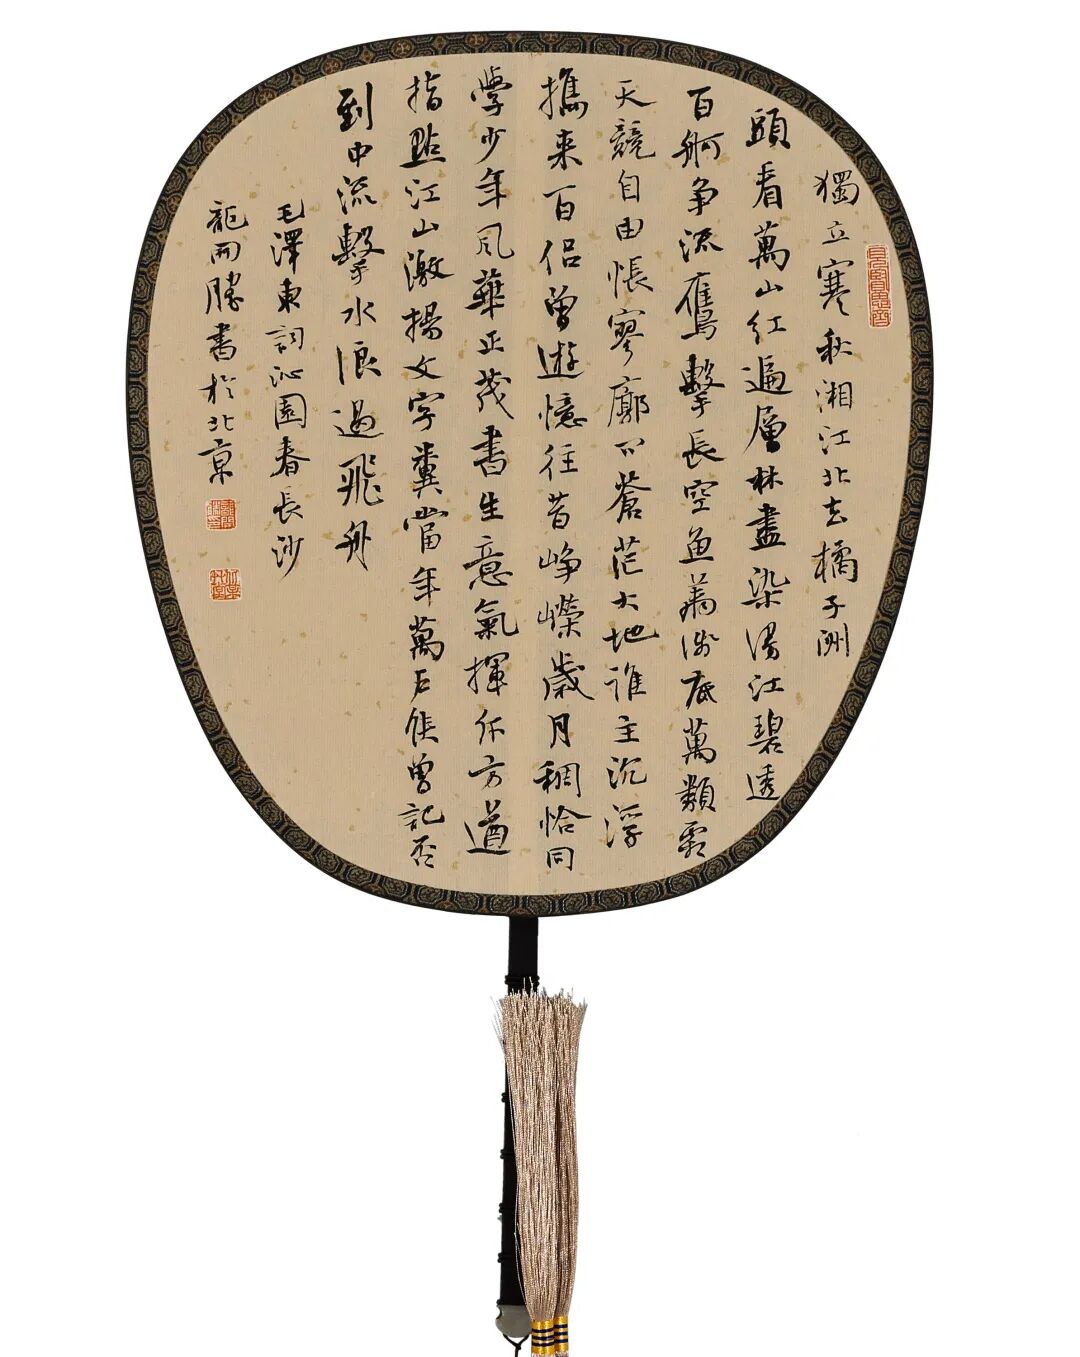 獨立寒秋湘江北去橘子洲
頭看萬山紅遍層林盡染漫江碧透
百舸争流鷹擊長空魚翔淺底萬類霜
天競自由悵寥廓问蒼茫大地誰主沉浮
攜來百侣曾遊憶往昔崢嶸歲月稠恰同
學少年風華正茂書生意氣揮斥方遒
指點江山激揚文字糞當年萬户侯曾記否
到中流擊水浪遏飛舟
毛澤東詞沁園春長沙
龍開勝書於北京